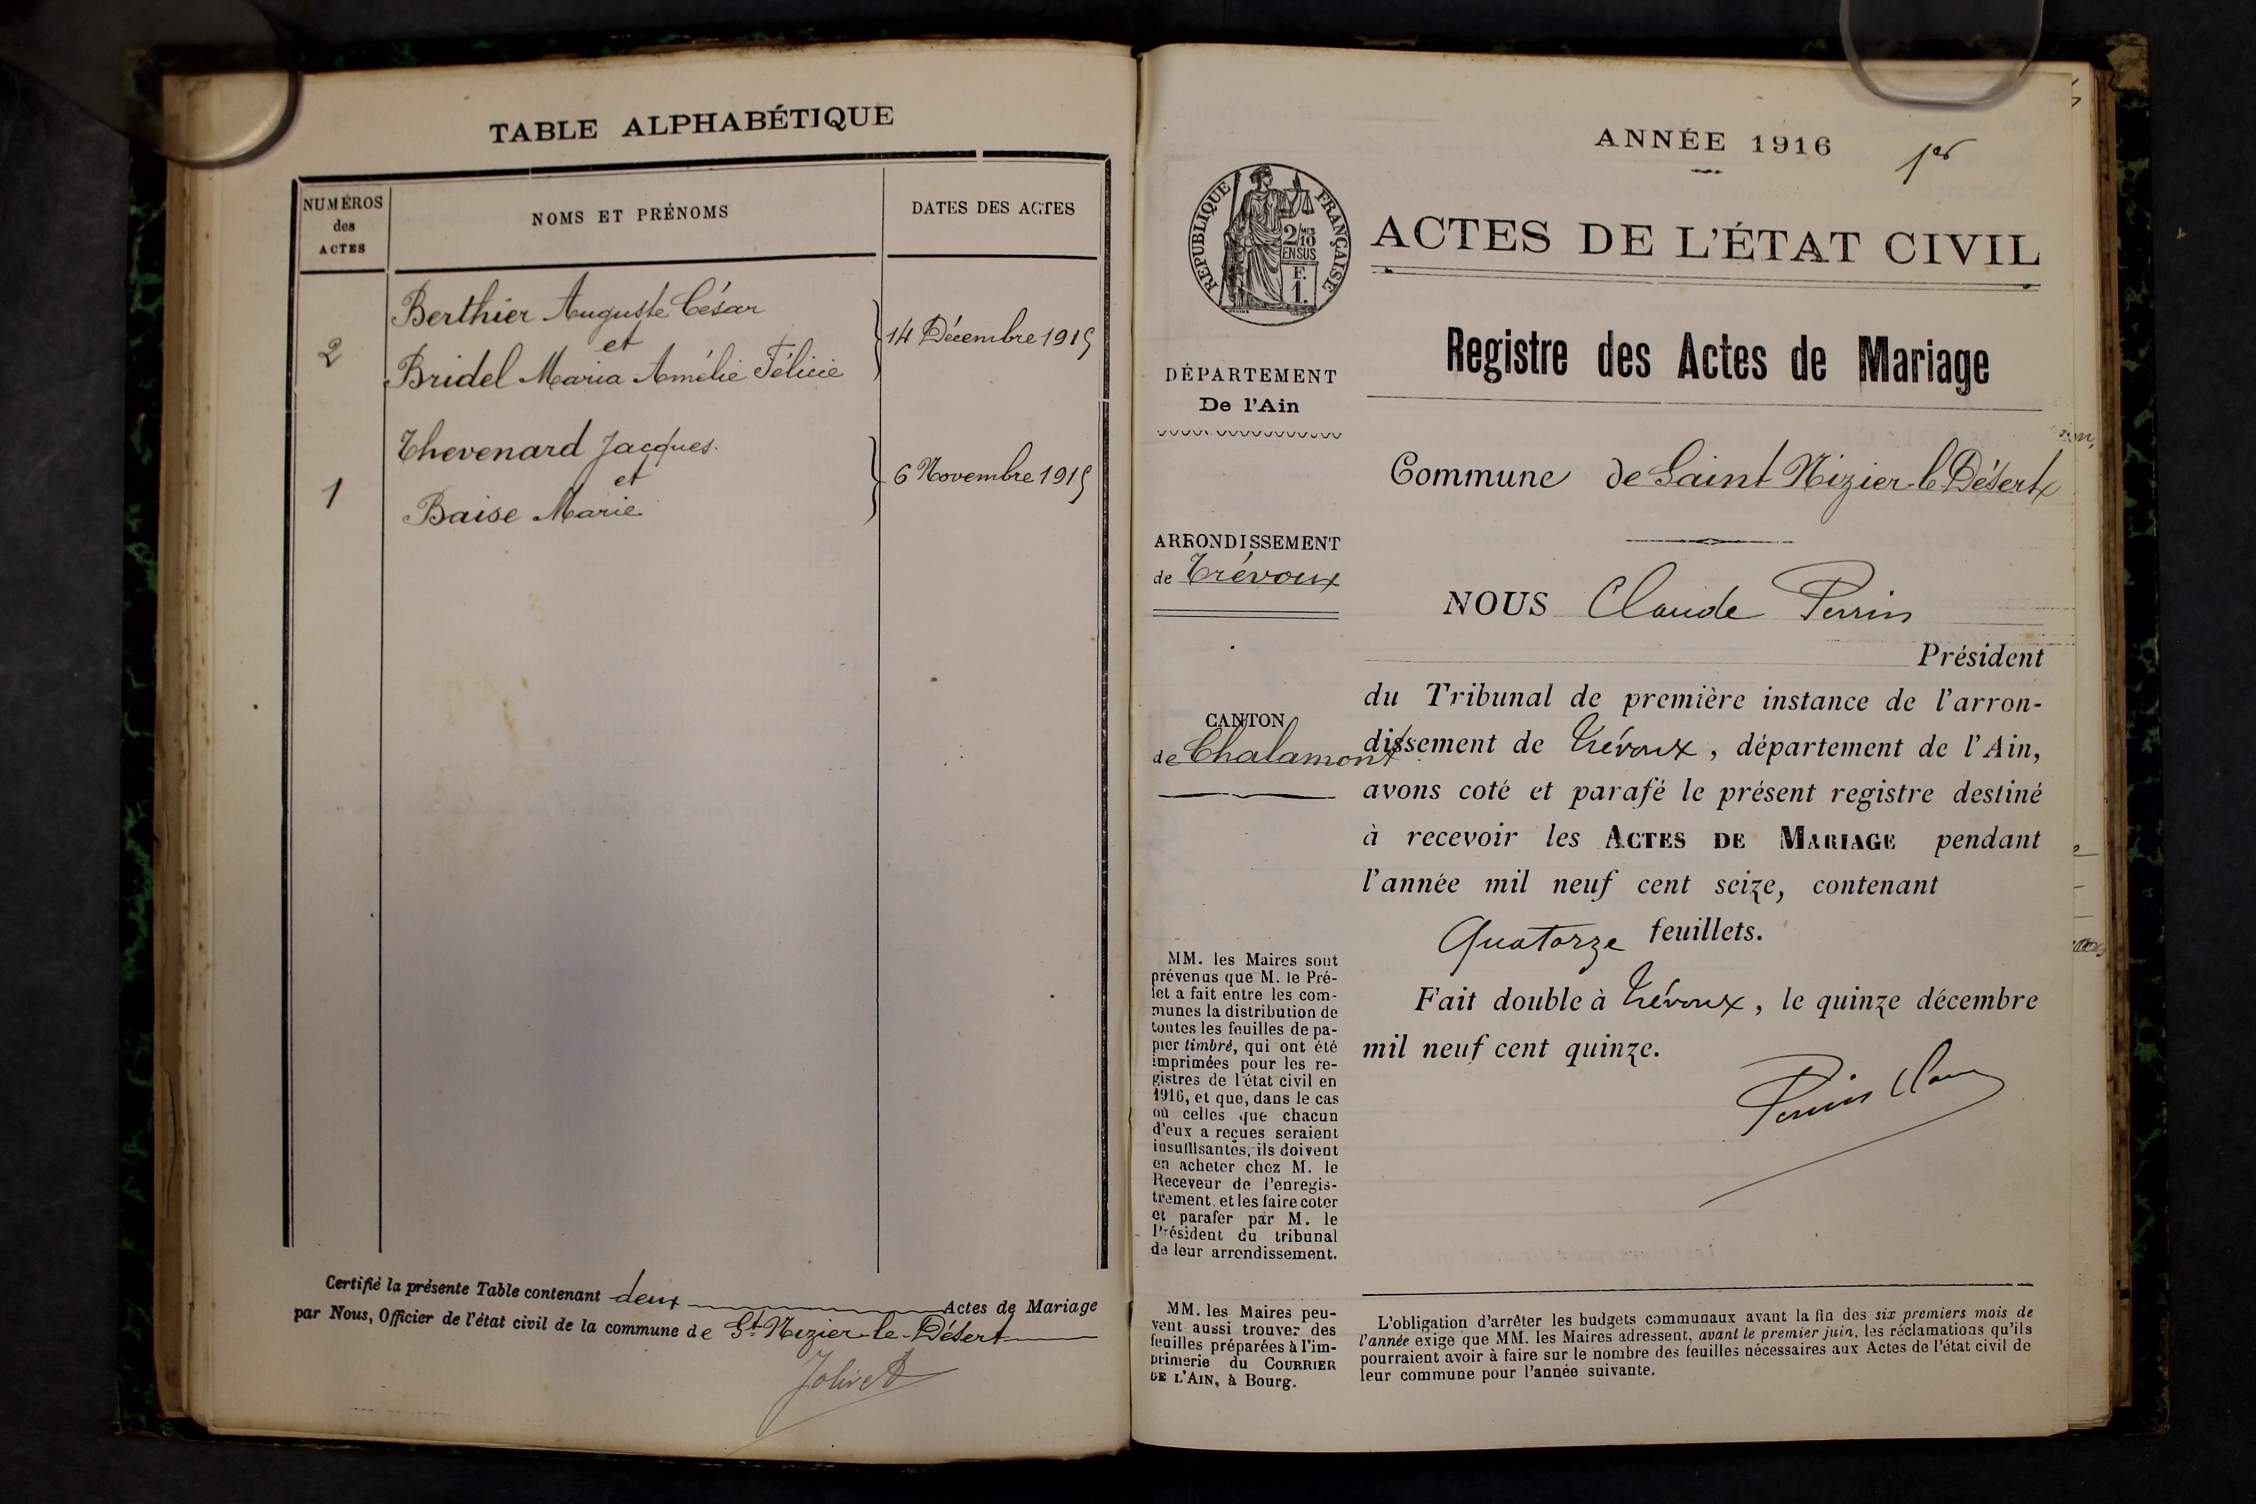 TABLE ALPHABÉTIQUE
NUMÉROS
des
ACTES
NOMS ET PRÉNOMS
DATES DES ACTES
2
Berthier Auguste César
et
Bridel Maria Amélie Félicie
14 Décembre 1915
1
Thevenard Jacques.
et
Baise Marie
6 Novembre 1915
Certifié la présente Table contenant deux Actes de Mariage
par Nous, Officier de l'état civil de la commune de St Nizier-le-Désert
Jolivet
ANNÉE 1916
1er
RÉPUBLIQUE FRANÇAISE
2/10
EN SUS
F.
1.
ACTES DE L'ÉTAT CIVIL
Registre des Actes de Mariage
DÉPARTEMENT
De l'Ain
Commune de Saint Nizier-le Désert
ARRONDISSEMENT
de Trévoux
CANTON
de Chalamont
NOUS Claude Perrin
Président
du Tribunal de première instance de l'arron-
dissement de Trévoux, département de l'Ain,
avons coté et parafé le présent registre destiné
à recevoir les ACTES DE MARIAGE pendant
l'année mil neuf cent seize, contenant
Quatorze feuillets.
Fait double à Trévoux, le quinze décembre
mil neuf cent quinze.
Perrin
MM. les Maires sont
prévenus que M. le Pré-
fet a fait entre les com-
munes la distribution de
toutes les feuilles de pa-
pier timbré, qui ont été
imprimées pour les re-
gistres de l'état civil en
1916, et que, dans le cas
où celles que chacun
d'eux a reçues seraient
insuffisantes, ils doivent
en acheter chez M. le
Receveur de l'enregis-
trement, et les faire coter
et parafer par M. le
Président du tribunal
de leur arrondissement.
MM. les Maires peu-
vent aussi trouver des
feuilles préparées à l'im-
primerie du COURRIER
DE L'AIN, à Bourg.
L'obligation d'arrêter les budgets communaux avant la fin des six premiers mois de
l'année exige que MM. les Maires adressent, avant le premier juin, les réclamations qu'ils
pourraient avoir à faire sur le nombre des feuilles nécessaires aux Actes de l'état civil de
leur commune pour l'année suivante.